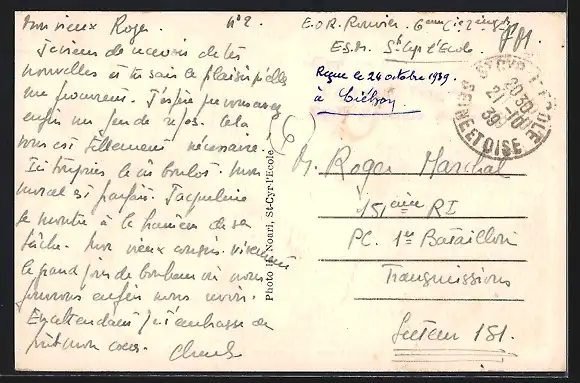 Mon vieux Roger. N° 2.
Je viens de recevoir de tes
nouvelles et tu sais le plaisir qu'elles
me procurent. J'espère que vous avez
enfin un peu de repos. Cela
vous est tellement nécessaire.
Ici toujours le boulot. Mon
moral est parfait. Jacqueline
se montre à la hauteur de sa
tâche. Mon vieux cousin vivement
le grand jour de bonheur où nous
pourrons enfin nous revoir.
En attendant je t'embrasse de
tout mon coeur.
E.O.R. Rouvier. 6ème Cie
E.S.M. St Cyr l'Ecole.
F.M.
Reçue le 26 octobre 1939
à
ST CYR L'ECOLE
20·30
21-10
39
SEINE ET OISE
(6)
M. Roger Marchal
151ème RI
PC. 1er Bataillon
Transmissions
Secteur 181.
Photo J. Noari, St-Cyr-l'Ecole